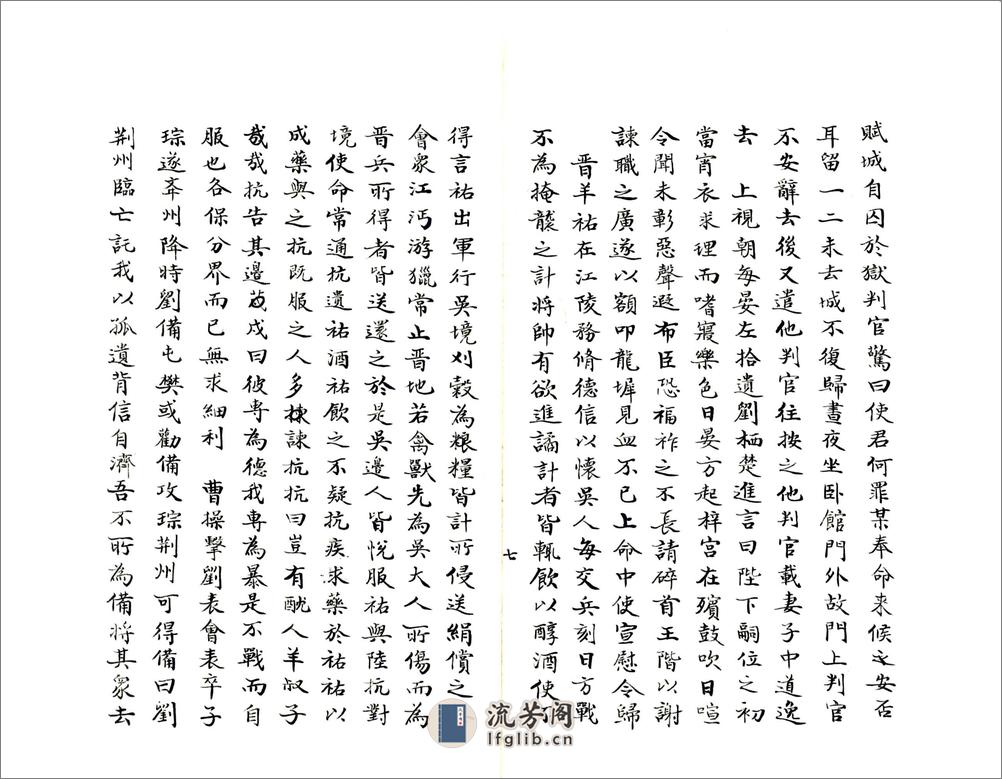 賦城自囚於獄判官驚曰使君何罪某奉命来候之安否
耳留一二未去城不復歸晝夜坐卧館門外故門上判官
不安辭去後又遣他判官往按之他判官載妻子中道逸
去　上視朝每晏左拾遺劉栖楚進言曰陛下嗣位之初
當宵衣求理而嗜寢樂色日晏方起梓宫在殯鼓吹日喧
令聞未彰惡聲遐布臣恐福祚之不長請碎首王階以謝
諫職之廣遂以額叩龍墀見血不已上命中使宣慰令歸
晋羊祜在江陵務脩德信以懷吳人每交兵刻日方戰
不為掩襲之計將帥有欲進譎計者皆輒飲以醇酒使不
七
得言祜出軍行吳境刈穀為粮糧皆計所侵送絹償之
會衆江沔游獵常止晋地若禽獸先為吳大人所傷而為
晋兵所得者皆送還之於是吳邊人皆悅服祜與陸抗對
境使命常通抗遺祜酒祜飲之不疑抗疾求藥於祜祜以
成藥與之抗既服之人多諫抗抗曰豈有酖人羊叔子
哉哉抗告其邊戍曰彼専為德我専為暴是不戰而自
服也各保分界而已無求細利　曹操擊劉表會表卒子
琮遂弃州降時劉備屯樊或勸備攻琮荆州可得備曰劉
荆州臨亡託我以孤遺背信自濟吾不所為備將其衆去
流芳阁
lfglib.cn